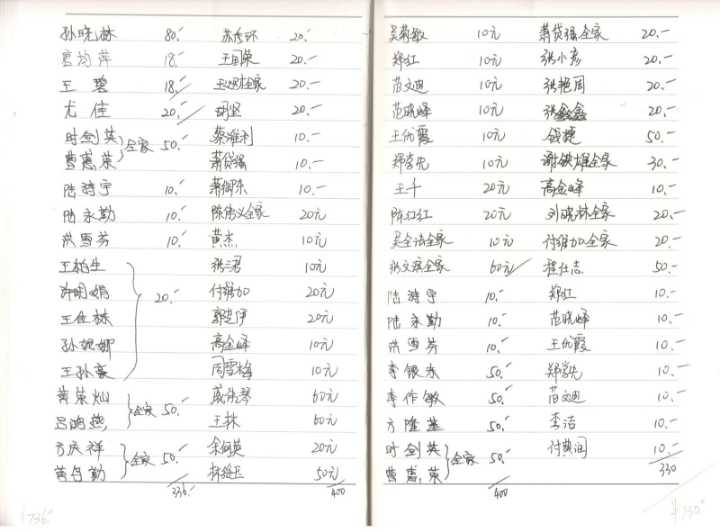 孙晓林 80.- 20.-
葛均萍 18.- 王国荣 20.-
王碧 18.- 全家 20.-
尤佳 20.- 胡坚 20.-
时剑英 全家 50.- 蔡准利 10.-
曹惠荣 萧贷福 10.-
陆诗宇 10.- 10.-
陆永勤 10.- 陈伟义全家 20元
洪雪芬 10.- 黄杰 10元
王柏生 张涓 10元
许明娟 20.- 付继加 20元
王仕林 郭建伊 20元
孙妮娜 高金峰 10元
王孙豪 周雪梅 10元
黄荣灿 全家 50.- 戚依琴 60元
吕鸿燕 王林 60元
方庆祥 全家 50.- 余佩英 20元
黄合勤 林雅玉 50元
336.- 400
736.-
吴菊敏 10元 萧贷福全家 20.-
郑红 10元 张小彦 20.-
范文迪 10元 张艳周 20.-
范晓峰 10元 张鑫鑫 20.-
王优霞 10元 钱捷 50.-
郑富先 10元 谢铁雄全家 30.-
王千 20元 高金峰 10.-
陈红红 20元 刘晓林全家 20.-
吴金法全家 10元 付继加全家 20.-
张文滨全家 60元 崔仕志 50.-
陆诗宇 10.- 郑红 10.-
陆永勤 10.- 范晓峰 10.-
洪雪芬 10.- 王优霞 10.-
李银东 50.- 郑富先 10.-
李作敏 50.- 范文迪 10.-
方隆基 50.- 李洁 10.-
时剑英 全家 50.- 付黄润 10.-
曹惠荣 330
400
730.-